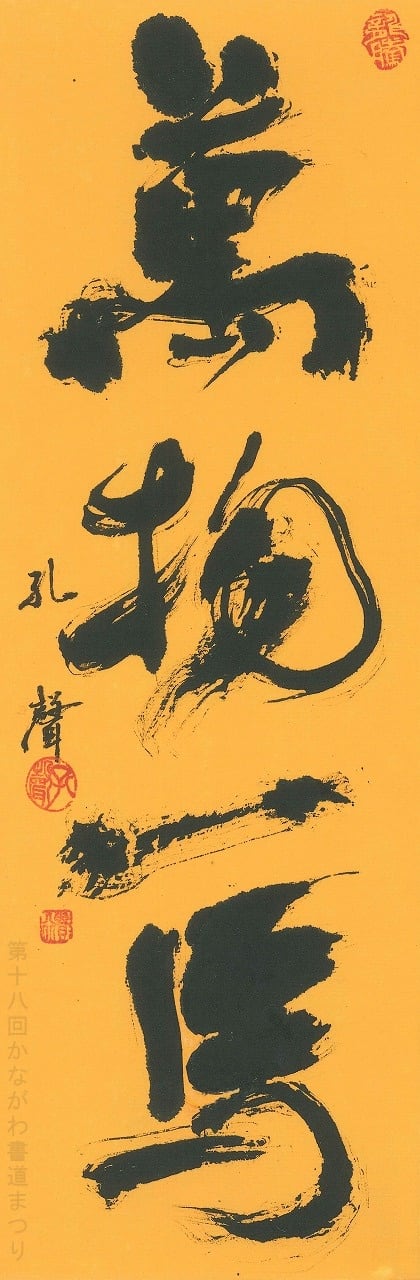 萬物一馬
孔聲
第十八回かながわ書道まつり